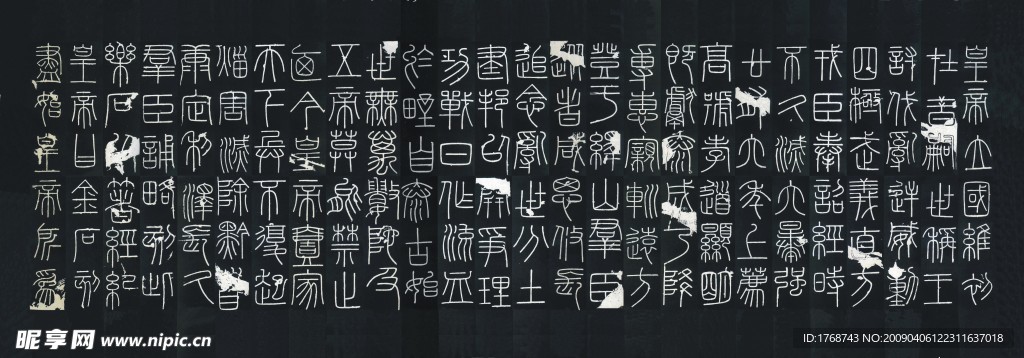 皇帝立國維初
在昔嗣世稱王
討伐亂逆威動
四極武義直方
戎臣奉詔經時
不久滅六暴強
廿有六年上薦
高號孝道顯明
既獻泰成乃降
專惠親巡遠方
登于繹山群臣
從者咸思攸長
追念亂世分土
建邦以開爭理
功戰日作流血
於野自泰古始
世無萬數陀及
五帝莫能禁止
廼今皇帝壹家
天下兵不復起
災害滅除黔首
康定利澤長久
群臣誦略刻此
樂石以著經紀
皇帝曰金石刻
盡始皇帝所為
昵享网 www.nipic.cn
ID:1768743 NO:20090406122311637018